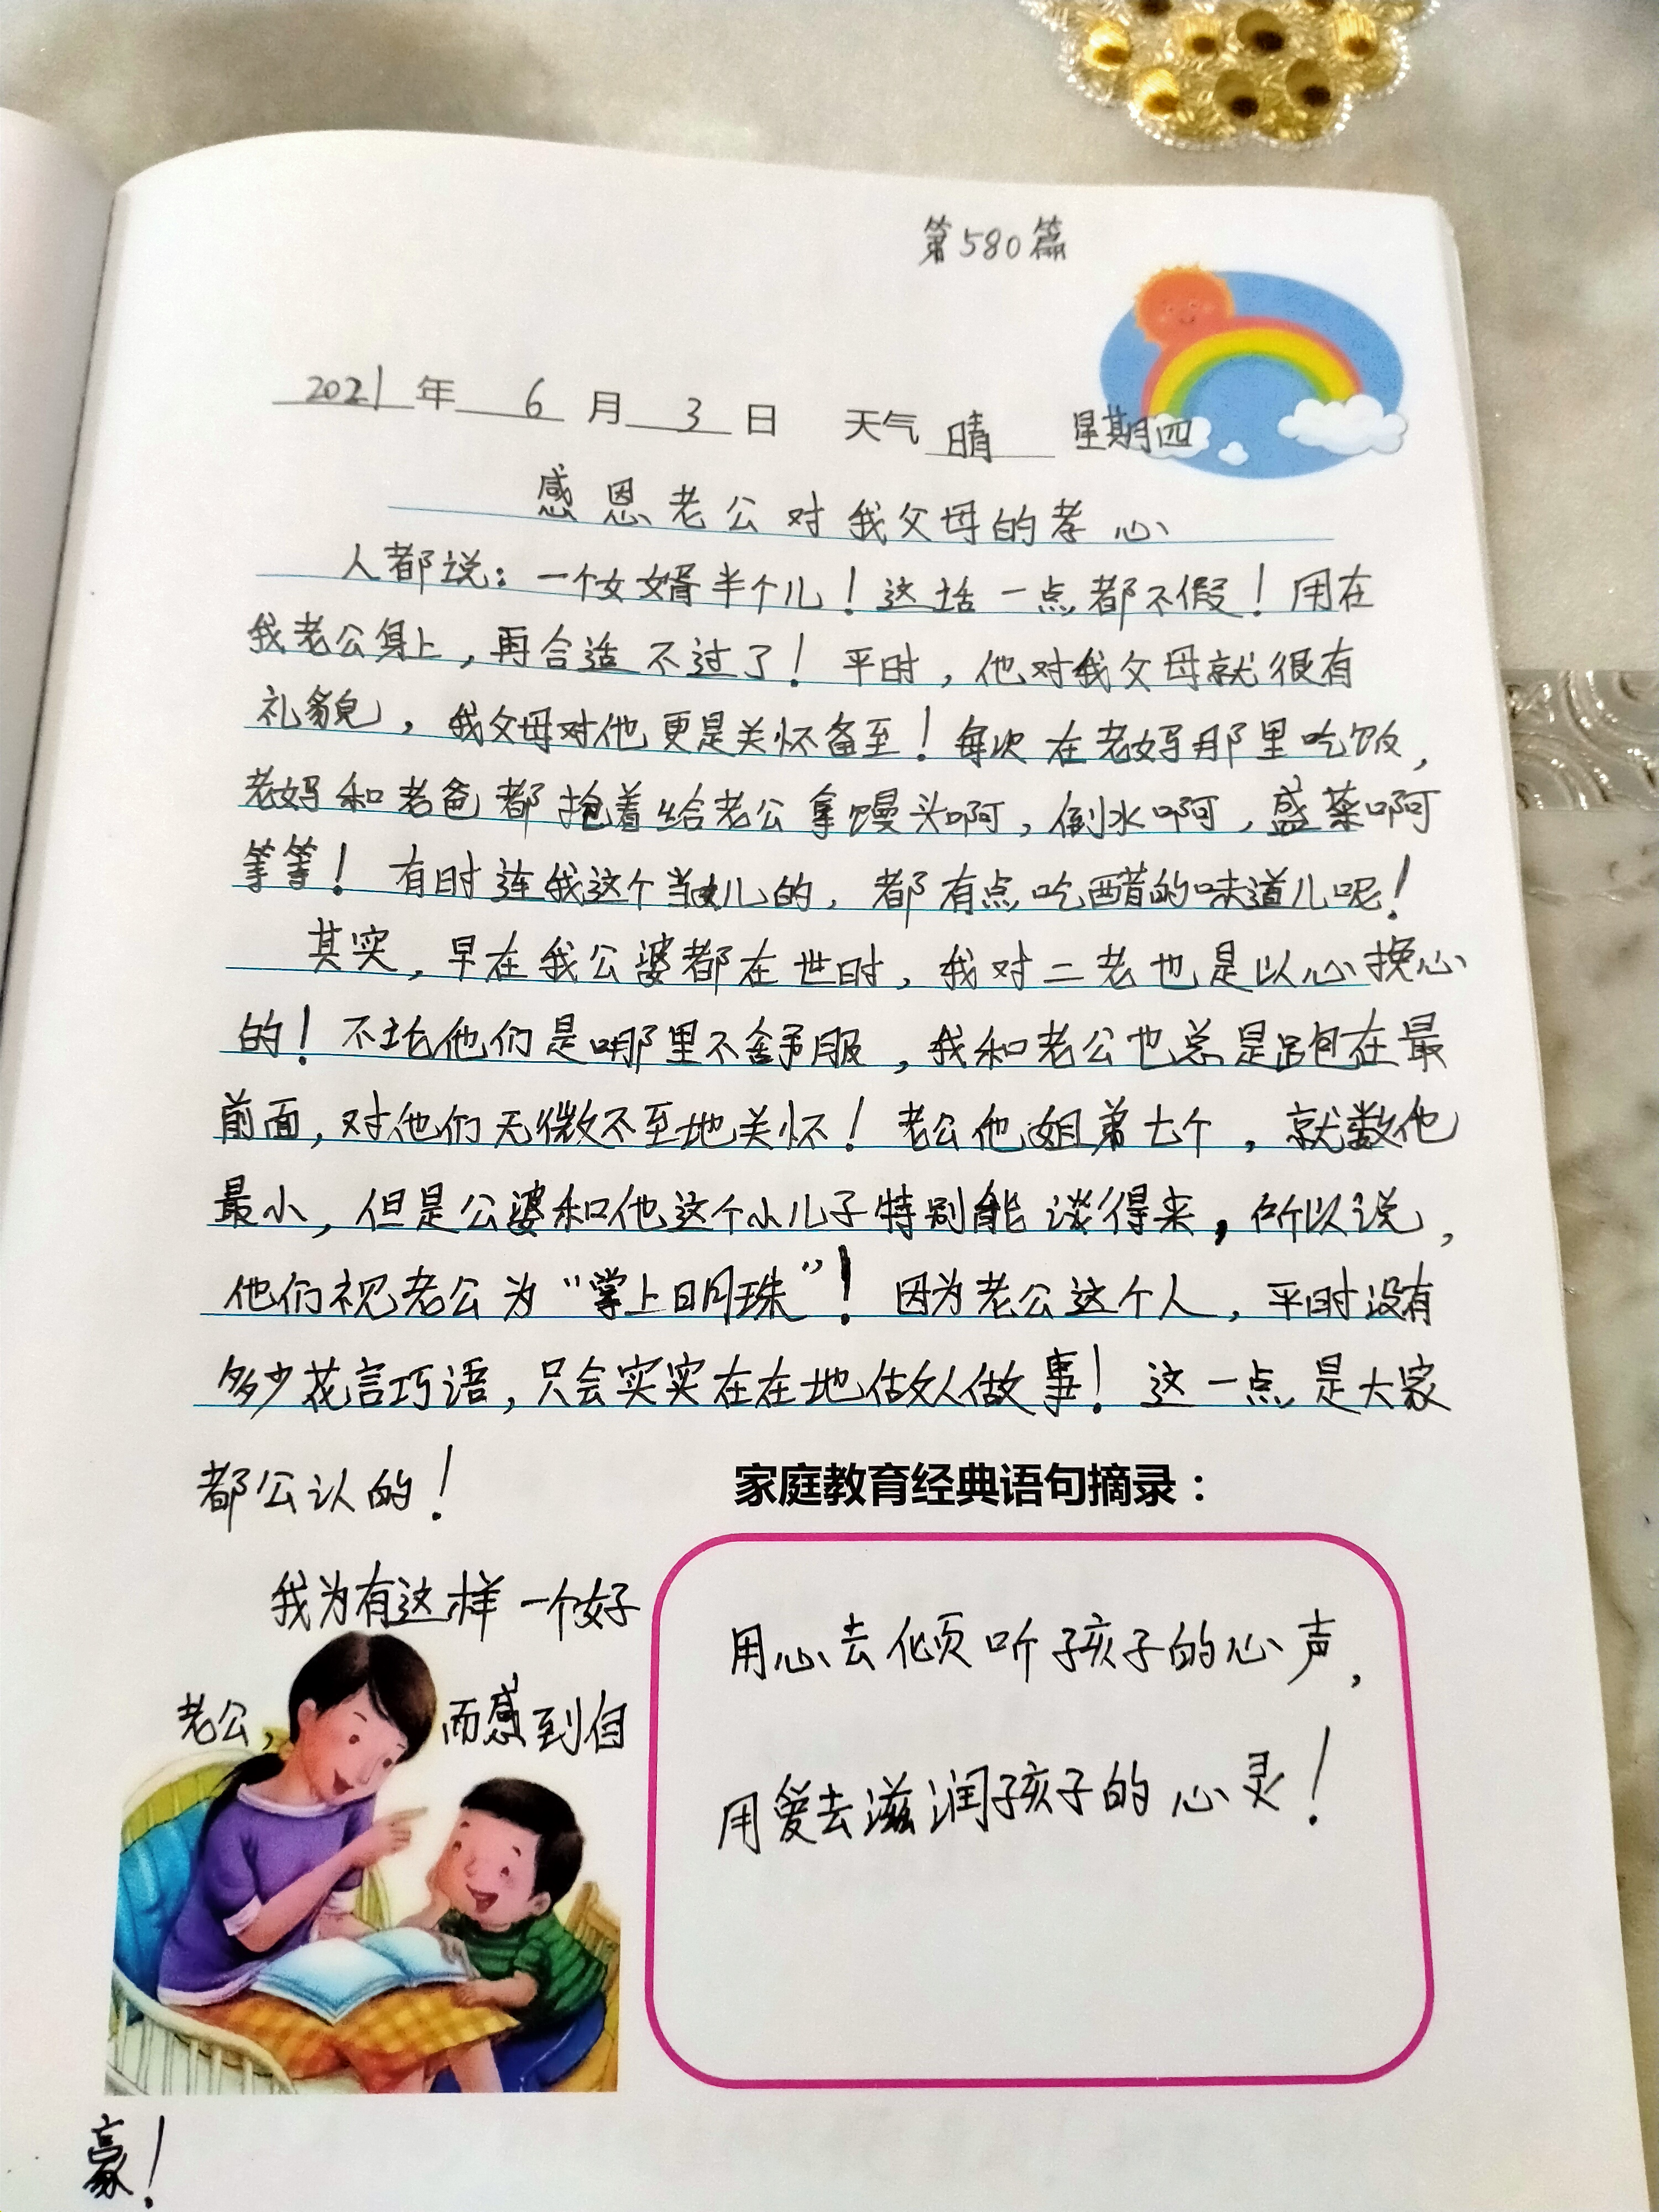 第580篇
2021年 6 月 3 日 天气 晴 星期四
感恩老公对我父母的孝心
人都说:一个女婿半个儿!这话一点都不假!用在
我老公身上,再合适不过了!平时,他对我父母就很有
礼貌,我父母对他更是关怀备至!每次在老妈那里吃饭,
老妈和老爸都抢着给老公拿馒头啊,倒水啊,盛菜啊
等等!有时连我这个当女儿的,都有点吃醋的味道儿呢!
其实,早在我公婆都在世时,我对二老也是以心换心
的!不论他们是哪里不舒服,我和老公也总是跑在最
前面,对他们无微不至地关怀!老公他姐弟七个,就数他
最小,但是公婆和他这个小儿子特别能谈得来,所以说,
他们视老公为“掌上明珠”!因为老公这个人,平时没有
多少花言巧语,只会实实在在地做人做事!这一点是大家
都公认的!
我为有这样一个好
老公,而感到自
豪!
家庭教育经典语句摘录:
用心去倾听孩子的心声,
用爱去滋润孩子的心灵!